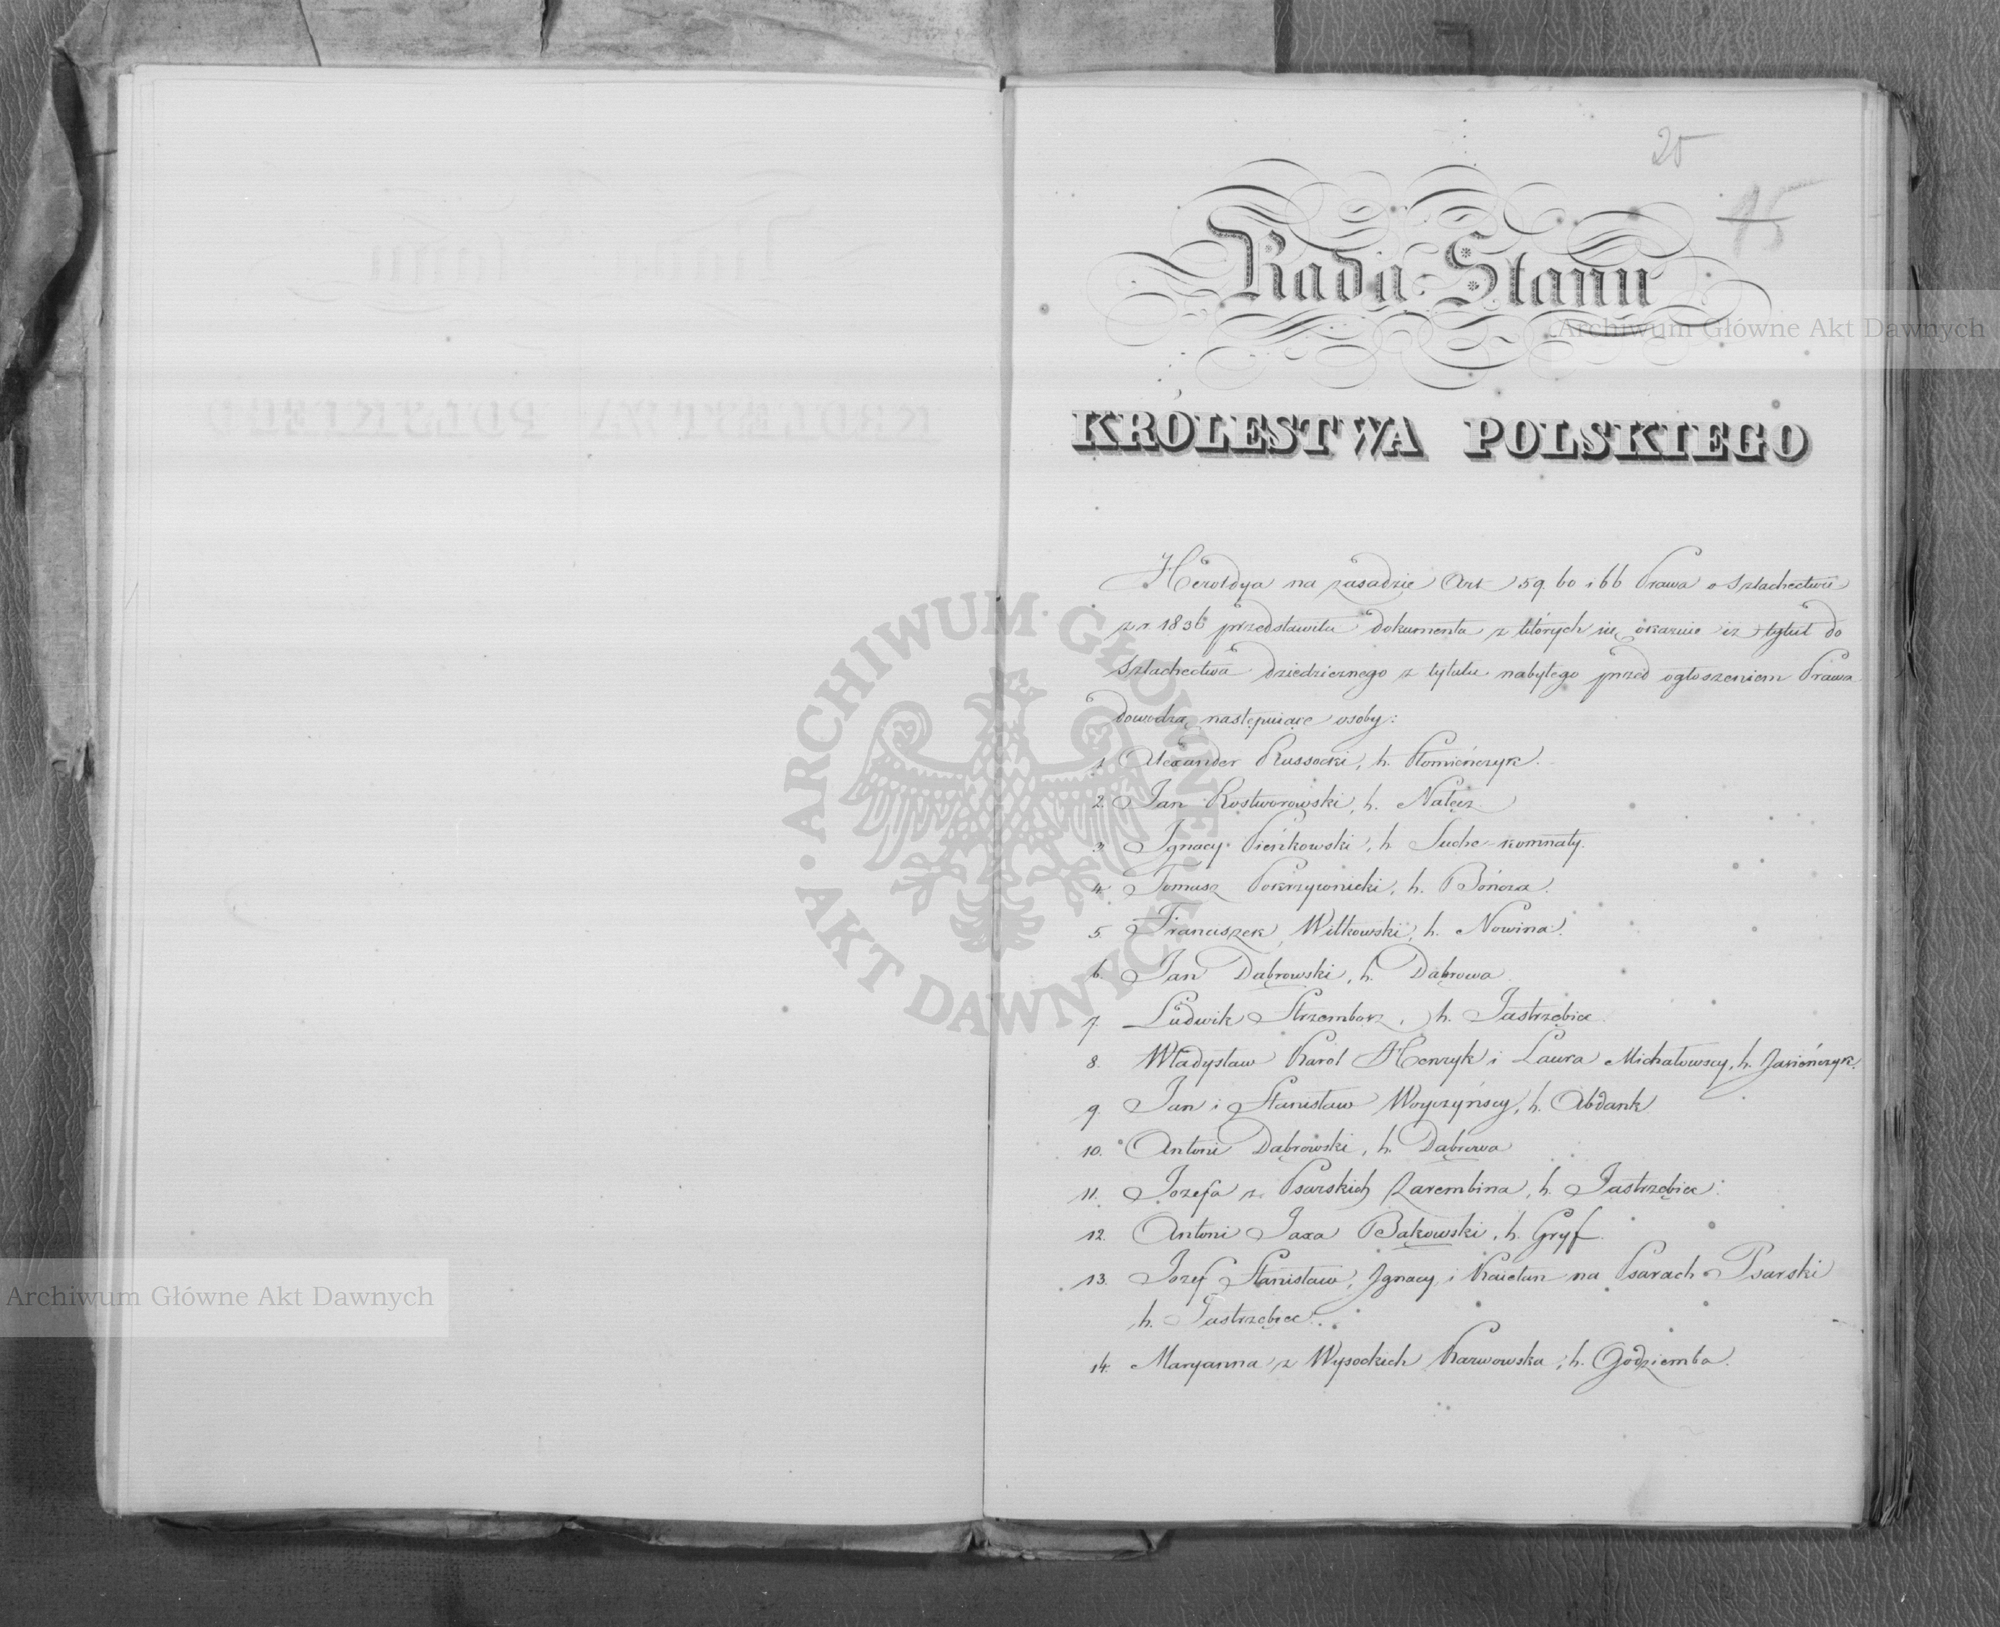 25
15
Rada Stanu
KRÓLESTWA POLSKIEGO
Heroldya na zasadzie Art 59. 60 i 66 Prawa o Szlachectwie
z r. 1836 przedstawiła dokumenta z których się okazuie iż tytuł do
Szlachectwa dziedzicznego z tytułu nabytego przed ogłoszeniem Prawa
dowodzą następuiące osoby:
1 Alexander Russocki, h. Płomieńczyk.
2. Jan Rostworowski, h. Nałęcz.
3. Ignacy Pieńkowski, h. Suche-komnaty.
4. Tomasz Pokrzywnicki, h. Bończa.
5. Franciszek Witkowski, h. Nowina.
6. Jan Dąbrowski, h. Dąbrowa
7. Ludwik Strzembosz, h. Jastrzębiec.
8. Władysław Karol Henryk i Laura Michałowscy, h. Jasieńczyk.
9. Jan i Stanisław Woyczyńscy, h. Abdank
10. Antoni Dąbrowski, h. Dąbrowa
11. Jozefa z Psarskich Zarembina, h. Jastrzębiec.
12. Antoni Jaxa Bąkowski, h. Gryf.
13. Jozef, Stanisław, Ignacy i Kaietan na Psarach Psarski
h. Jastrzębiec.
14. Maryanna z Wysockich Karwowska, h. Godziemba.
Archiwum Główne Akt Dawnych
ARCHIWUM · GŁÓWNE · AKT DAWNYCH ·
Archiwum Główne Akt Dawnych